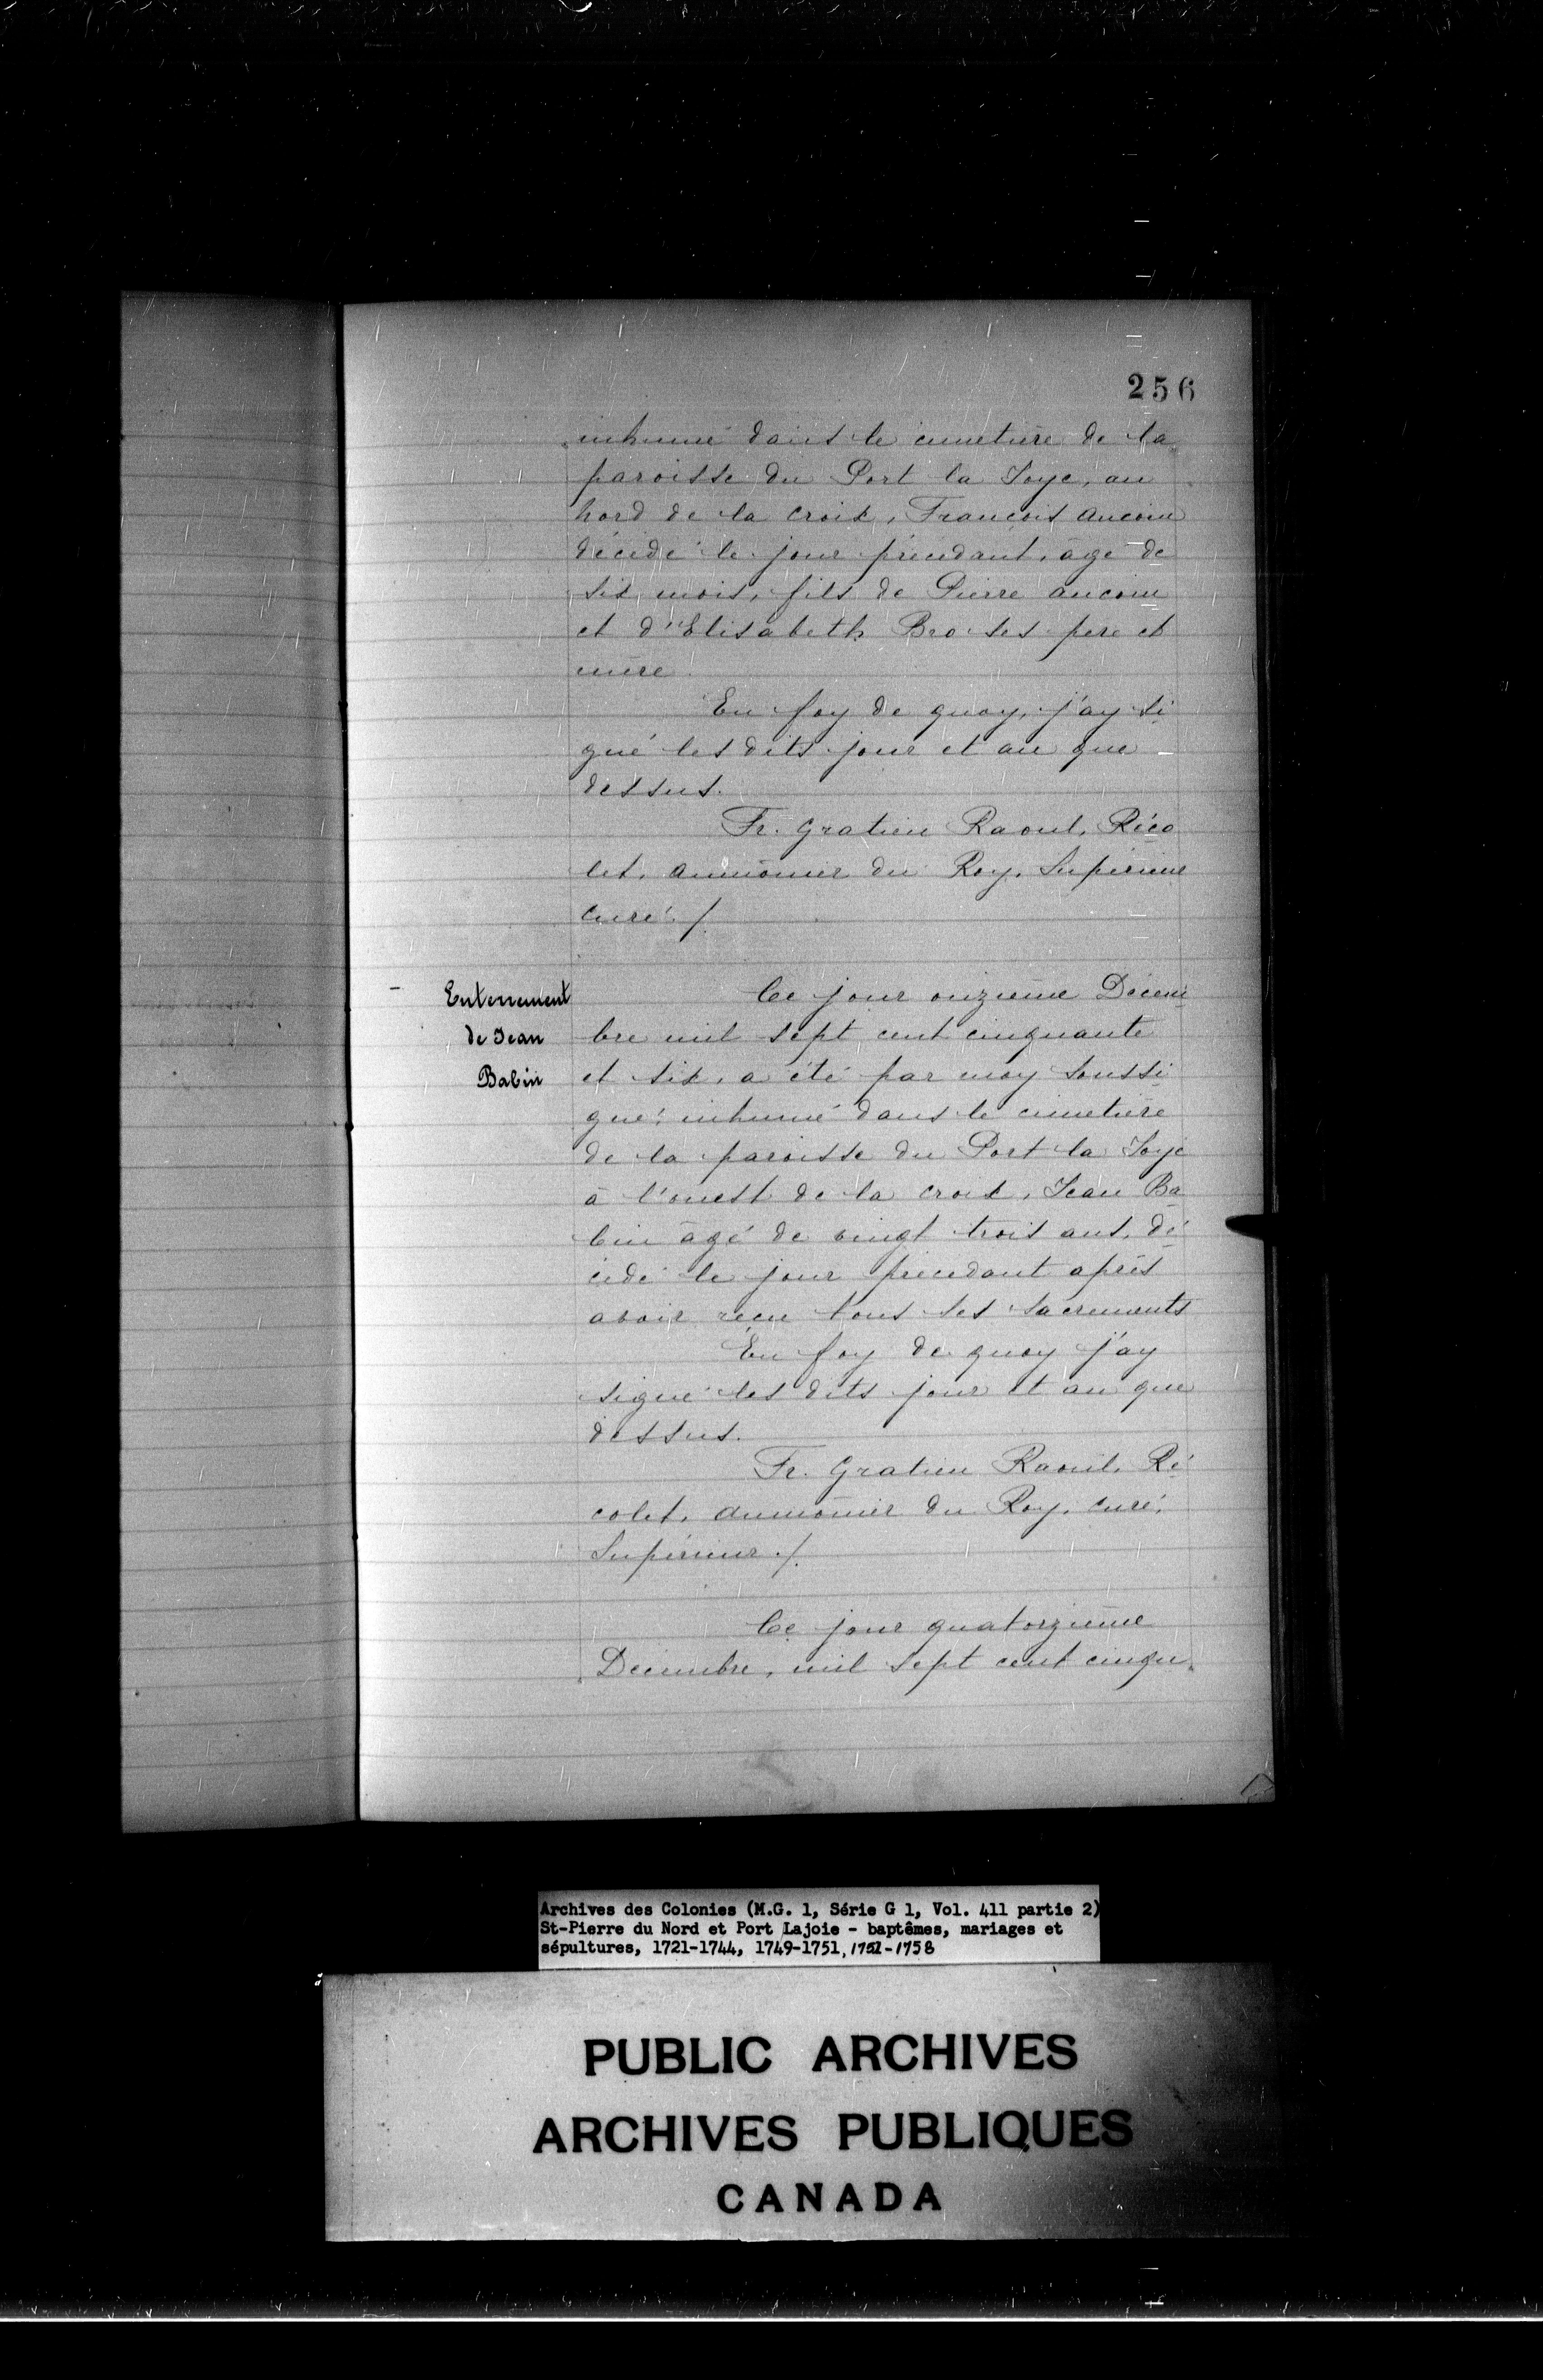 256
inhumé dans le cimetière de la
paroisse du Port la Joye, au
nord de la croix, François Aucoin
décédé le jour précédant, âgé de
six mois, fils de Pierre aucoin
et d'Elisabeth Bro ses père et
mère.
En foy de quoy, j'ay si
gné les dits jour et an que
dessus.
Fr. Gratien Raoul, Réco
let, aumônier du Roy, Supérieur
curé ./.
Enterrement
de Jean
Babin
Ce jour onzième Décem
bre mil sept cent cinquante
et six, a été par moy soussi
gné, inhumé dans le cimetière
de la paroisse du Port la Joye
à l'ouest de la croix, Jean Ba
bin âgé de vingt trois ans, dé
cédé le jour précédant après
avoir reçu tous ses sacrements
En foy de quoy j'ay
signé les dits jour et an que
dessus.
Fr. Gratien Raoul, Ré
colet, aumônier du Roy, curé,
Supérieur ./.
Ce jour quatorzième
Décembre, mil sept cent cinqu
Archives des Colonies (M.G. 1, Série G 1, Vol. 411 partie 2)
St-Pierre du Nord et Port Lajoie - baptêmes, mariages et
sépultures, 1721-1744, 1749-1751, 1752-1758
PUBLIC ARCHIVES
ARCHIVES PUBLIQUES
CANADA